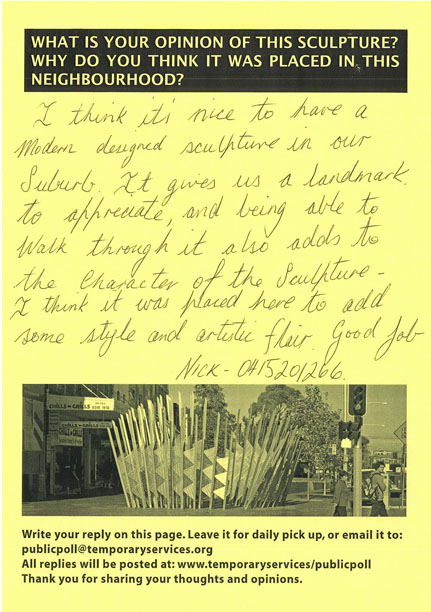 WHAT IS YOUR OPINION OF THIS SCULPTURE?
WHY DO YOU THINK IT WAS PLACED IN THIS
NEIGHBOURHOOD?
I think it's nice to have a
Modern designed sculpture in our
Suburb. It gives us a landmark
to appreciate, and being able to
Walk through it also adds to
the Character of the Sculpture -
I think it was placed here to add
some style and artistic flair. Good Job
NICK - 0415201266.
CHILLI GRILLS
Write your reply on this page. Leave it for daily pick up, or email it to:
publicpoll@temporaryservices.org
All replies will be posted at: www.temporaryservices/publicpoll
Thank you for sharing your thoughts and opinions.